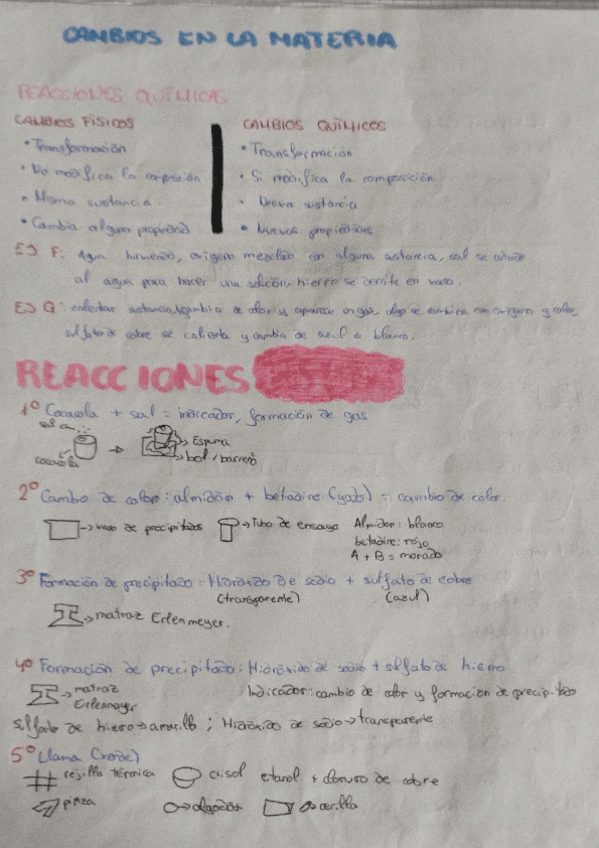 CAMBIOS EN LA MATERIA
REACCIONES QUÍMICAS
CAMBIOS FÍSICOS
• Transformación
• No modifica la composición
• Misma sustancia
• Cambia alguna propiedad
CAMBIOS QUÍMICOS
• Transformación
• Si modifica la composición
• Nueva sustancia
• Nuevas propiedades
EJ F: Agua hirviendo, oxígeno mezclado con alguna sustancia, sal se añade
al agua para hacer una solución, hierro se derrite en vaso.
EJ Q: calentar sustancia, cambio de olor y aparece un gas, se combina con oxígeno y calor,
sulfato de cobre se calienta y cambia de azul a blanco.
REACCIONES
1º Cocacola + sal = indicador, formación de gas
sal
cocacola
Espuma
bol / barreño
2º Cambio de color: almidón + betadine (yodo) = cambio de color.
vaso de precipitados
Tubo de ensayo
Almidón: blanco
betadine: rojo
A + B = morado
3º Formación de precipitado = Hidróxido de sodio + sulfato de cobre
(transparente) (azul)
matraz Erlenmeyer.
4º Formación de precipitado: Hidróxido de sodio + sulfato de hierro.
matraz
Erlenmayer
Indicador: cambio de color y formación de precipitado
sulfato de hierro → amarillo ; Hidróxido de sodio → transparente
5º Llama (verde)
rejilla térmica
crisol
etanol + cloruro de cobre
pinza
algodón
cerilla